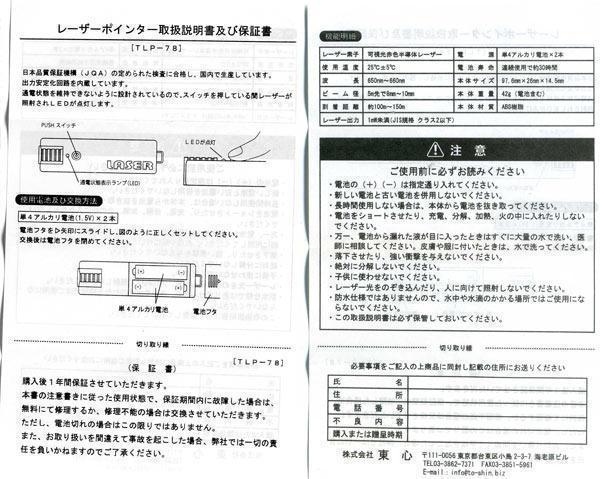 レーザーポインター取扱説明書及び保証書
[TLP-78]
日本品質保証機構(JQA)の定められた検査に合格し、国内で生産しています。
出力安定化回路を内蔵しています。
通電状態を維持できないように設計されているので、スイッチを押している間レーザーが
照射されLEDが点灯します。
PUSH スイッチ
LEDが点灯
LASER
通電状態表示ランプ(LED)
使用電池及び交換方法
単4アルカリ電池(1.5V)×2本
電池フタを▷矢印にスライドし、図のように正しくセットしてください。
交換後は電池フタを閉めてください。
単4アルカリ電池
電池フタ
切り取り線
[TLP-78]
(保 証 書)
購入後1年間保証させていただきます。
本書の注意書きに従った使用状態で、保証期間内に故障した場合は、
無料にて修理するか、修理不能の場合は交換させていただきます。
ただし、電池切れの場合はこの限りではありません。
また、お取り扱いを間違えて事故を起こした場合、弊社では一切の
責任を負いかねますのでご了承ください。
機能明細
レーザー素子 可視光赤色半導体レーザー 電源 単4アルカリ電池×2本
使用温度 25℃±5℃ 電池寿命 連続使用で約30時間
波長 650nm~660nm 本体サイズ 97.6mm×26mm×14.5mm
ビーム径 5m先で8mm~10mm 本体重量 42g(電池含む)
到着距離 約100m~150m 本体材質 ABS樹脂
レーザー出力 1mW未満(JIS規格 クラス2以下)
注 意
ご使用前に必ずお読みください
・電池の(+)(-)は指定通り入れてください。
・新しい電池と古い電池を併用しないでください。
・長時間使用しない場合は、本体から電池を抜き取ってください。
・電池をショートさせたり、充電、分解、加熱、火の中に入れたりしない
でください。
・万一、電池から漏れた液が目に入ったときはすぐに大量の水で洗い、医
師に相談してください。皮膚や服に付いたときは、水で洗ってください。
・落下させたり、強い衝撃を与えないでください。
・絶対に分解しないでください。
・子供に使わせないでください。
・レーザー光をのぞき込んだり、人に向けて照射しないでください。
・防水仕様ではありませんので、水中や水滴のかかる場所ではご使用にな
らないでください。
・この取扱説明書は必ず保管しておいてください。
切り取り線
必要事項をご記入の上商品に同封し記載の住所にお送りください
氏名
住所
電話番号
不良内容
購入または贈呈時期
株式会社 東 心 〒111-0056 東京都台東区小島2-3-7 海老原ビル
TEL03-3862-7371 FAX03-3851-5961
E-mail : info@to-shin.biz